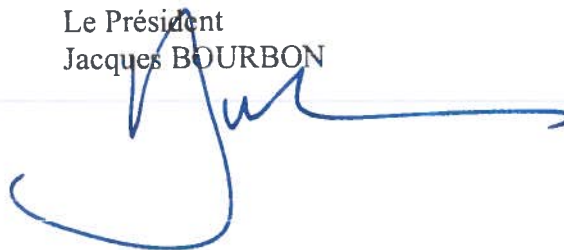 Le Président
Jacques BOURBON